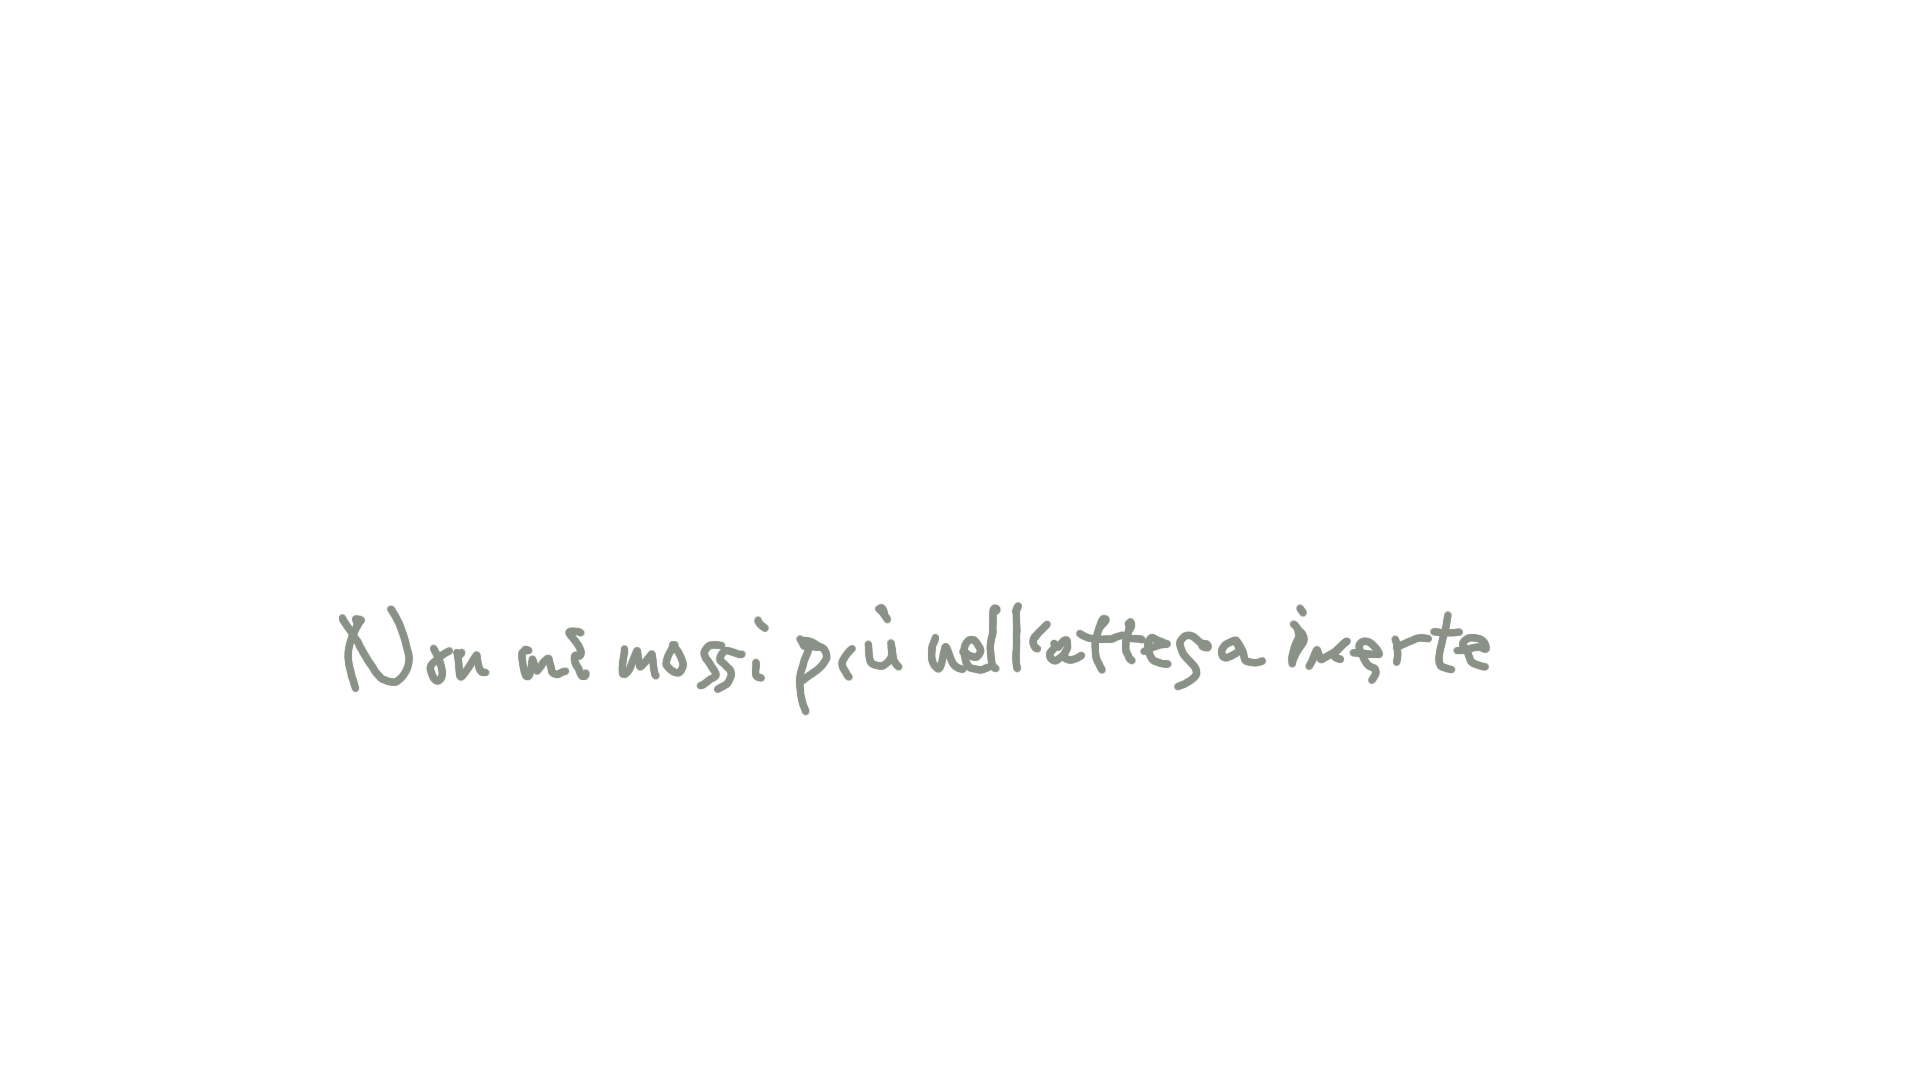 Non mi mossi più nell'attesa inerte